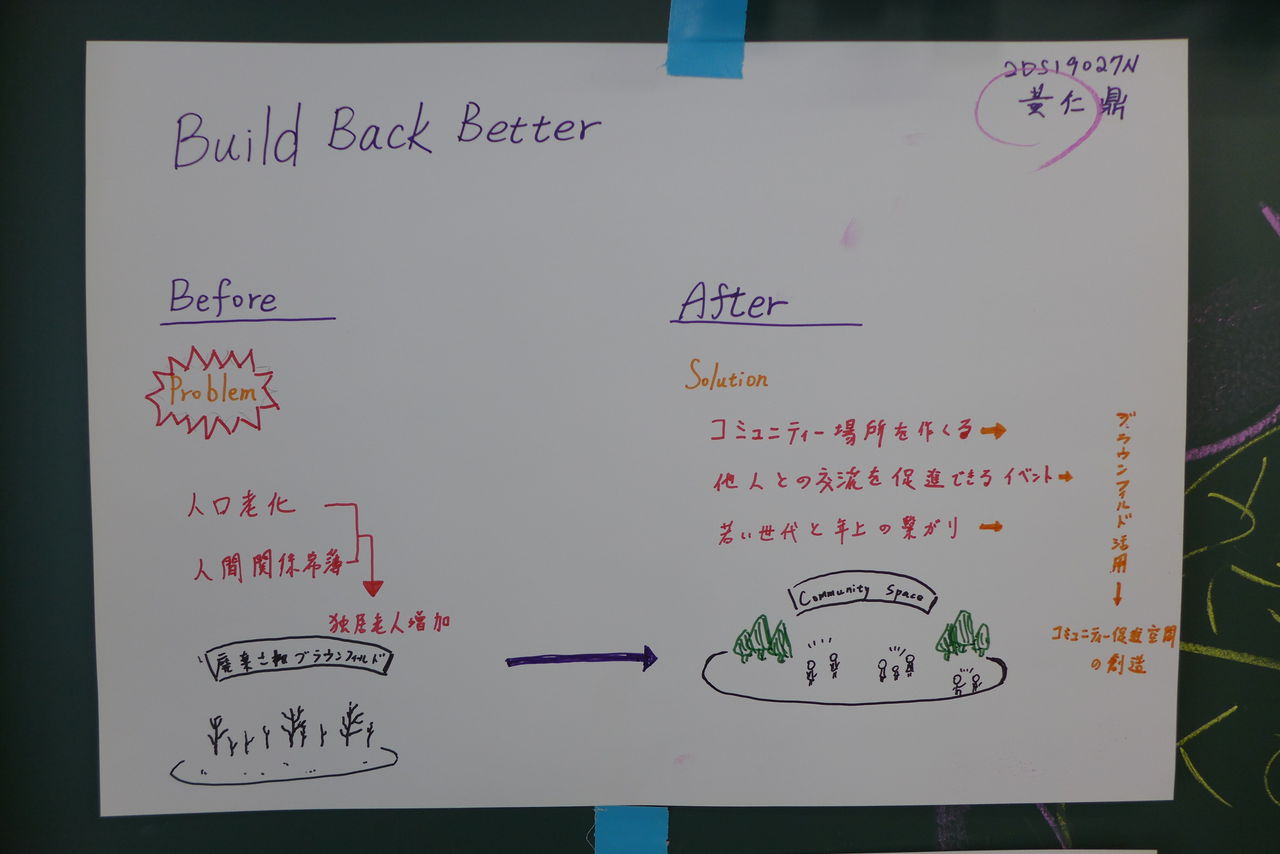 2DS19027N
黄仁鼎
Build Back Better
Before
Problem
人口老化
人間関係希薄
独居老人増加
廃棄された ブラウンフィールド
After
Solution
コミュニティー場所を作くる
他人との交流を促進できるイベント
若い世代と年上の繋がり
Community Space
ブラウンフィルド活用
コミュニティー促進空間
の創造